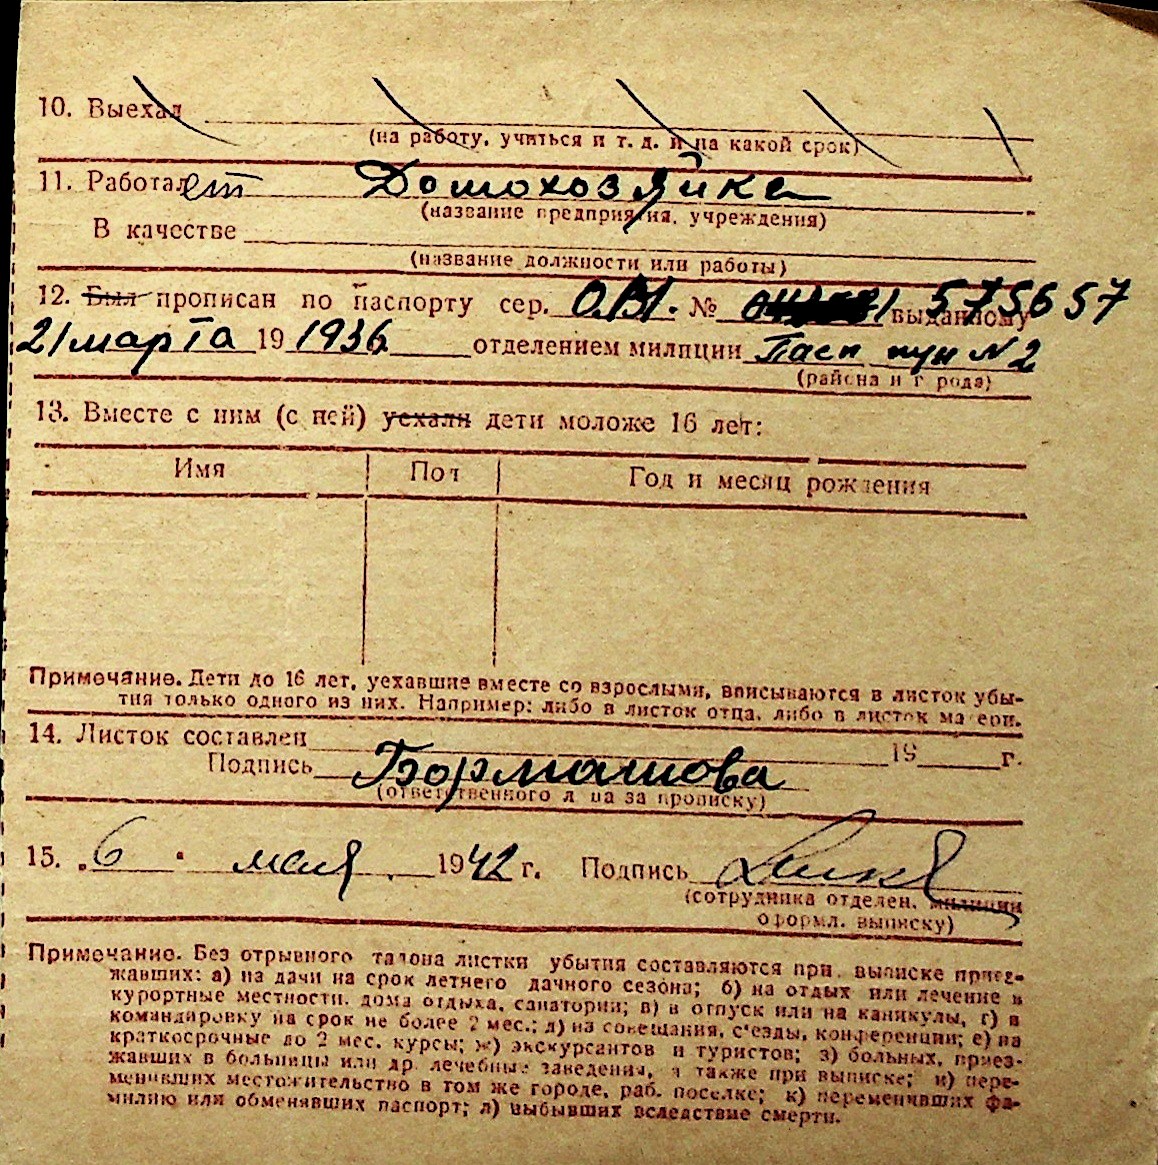 10. Выехал
(на работу, учиться и т. д. и на какой срок)
11. Работает Домохозяйка
(название предприятия, учреждения)
В качестве
(название должности или работы)
12. Был прописан по паспорту сер. О.В1. № 575657 выданному
21 марта 19 1936 отделением милиции Пасп пун N 2
(района и г рода)
13. Вместе с ним (с ней) уехали дети моложе 16 лет:
Имя Пол Год и месяц рождения
Примечание. Дети до 16 лет, уехавшие вместе со взрослыми, вписываются в листок убы-
тия только одного из них. Например: либо в листок отца, либо в листок матери.
14. Листок составлен 19 г.
Подпись Бормашова
(ответственного лица за прописку)
15. 6 мая 1942 г. Подпись
(сотрудника отделен. милиции
оформл. выписку)
Примечание. Без отрывного талона листки убытия составляются при выписке приез-
жавших: а) на дачи на срок летнего дачного сезона; б) на отдых или лечение в
курортные местности, дома отдыха, санатории; в) в отпуск или на каникулы, г) в
командировку на срок не более 2 мес.; д) на совещания, с'езды, конференции; е) на
краткосрочные до 2 мес. курсы; ж) экскурсантов и туристов; з) больных, приез-
жавших в больницы или др. лечебные заведения, а также при выписке; и) пере-
менивших местожительство в том же городе, раб. поселке; к) переменивших фа-
милию или обменявших паспорт; л) выбывших вследствие смерти.